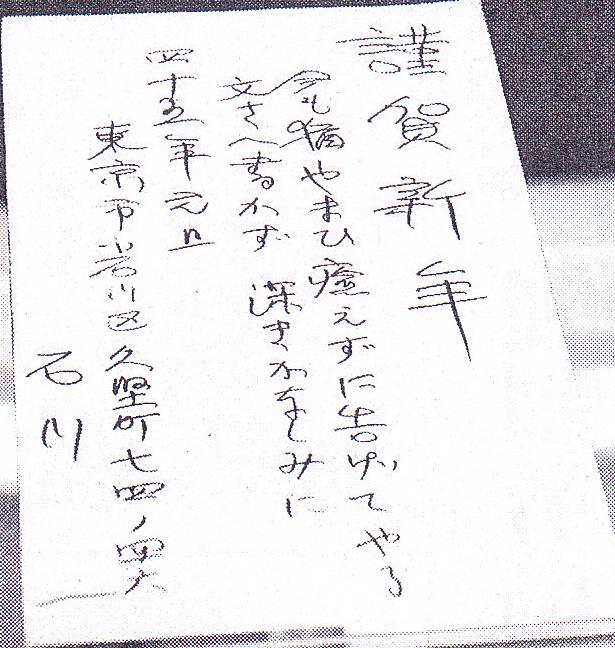 謹賀新年
今も猶やまひ癒えずに告げてやる
文さへ書かず 深きかなしみに
四十五年元旦
東京市小石川区久堅町七四ノ四六
石川